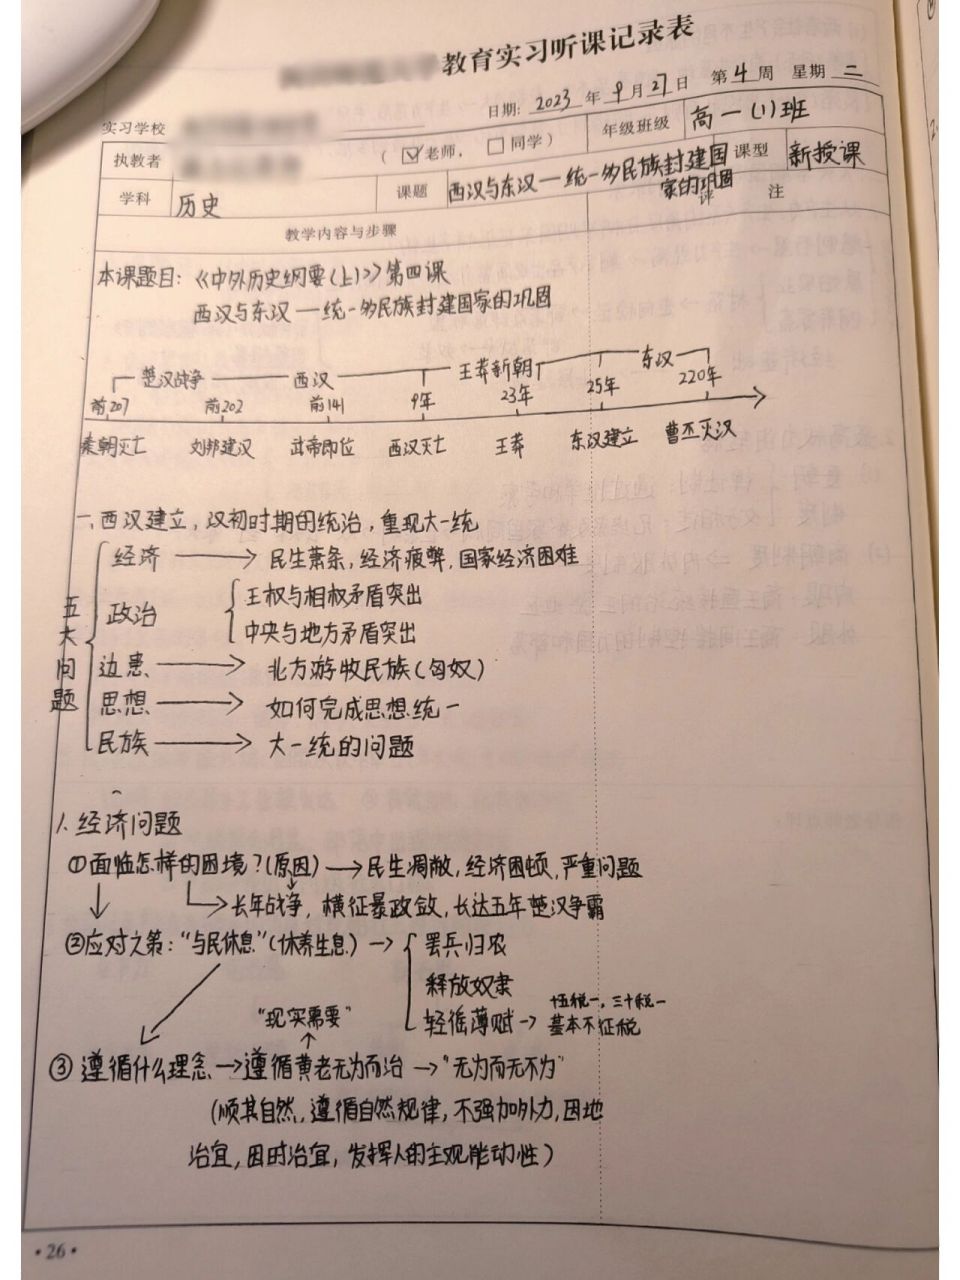 教育实习听课记录表
日期: 2023 年 9 月 27 日 第 4 周 星期 二
实习学校
执教者 (☑老师, □同学) 年级班级 高一(1)班
学科 历史 课题 西汉与东汉—统一多民族封建国家的巩固 课型 新授课
教学内容与步骤 评 注
本课题目:《中外历史纲要(上)》第四课
西汉与东汉—统一多民族封建国家的巩固
楚汉战争 西汉 王莽新朝 东汉
前207 前202 前141 9年 23年 25年 220年
秦朝灭亡 刘邦建汉 武帝即位 西汉灭亡 王莽 东汉建立 曹丕灭汉
一、西汉建立,汉初时期的统治,重现大一统
五大问题
经济 → 民生萧条,经济疲弊,国家经济困难
政治 王权与相权矛盾突出
中央与地方矛盾突出
边患 → 北方游牧民族(匈奴)
思想 → 如何完成思想统一
民族 → 大一统的问题
1.经济问题
①面临怎样的困境?(原因) → 民生凋敝,经济困顿,严重问题
→长年战争,横征暴政敛,长达五年楚汉争霸
②应对之策:“与民休息”(休养生息) → 罢兵归农
释放奴隶
轻徭薄赋 → 十五税一,三十税一
基本不征税
“现实需要”
③遵循什么理念→遵循黄老无为而治→“无为而无不为”
(顺其自然,遵循自然规律,不强加外力,因地
治宜,因时治宜,发挥人的主观能动性)
·26·